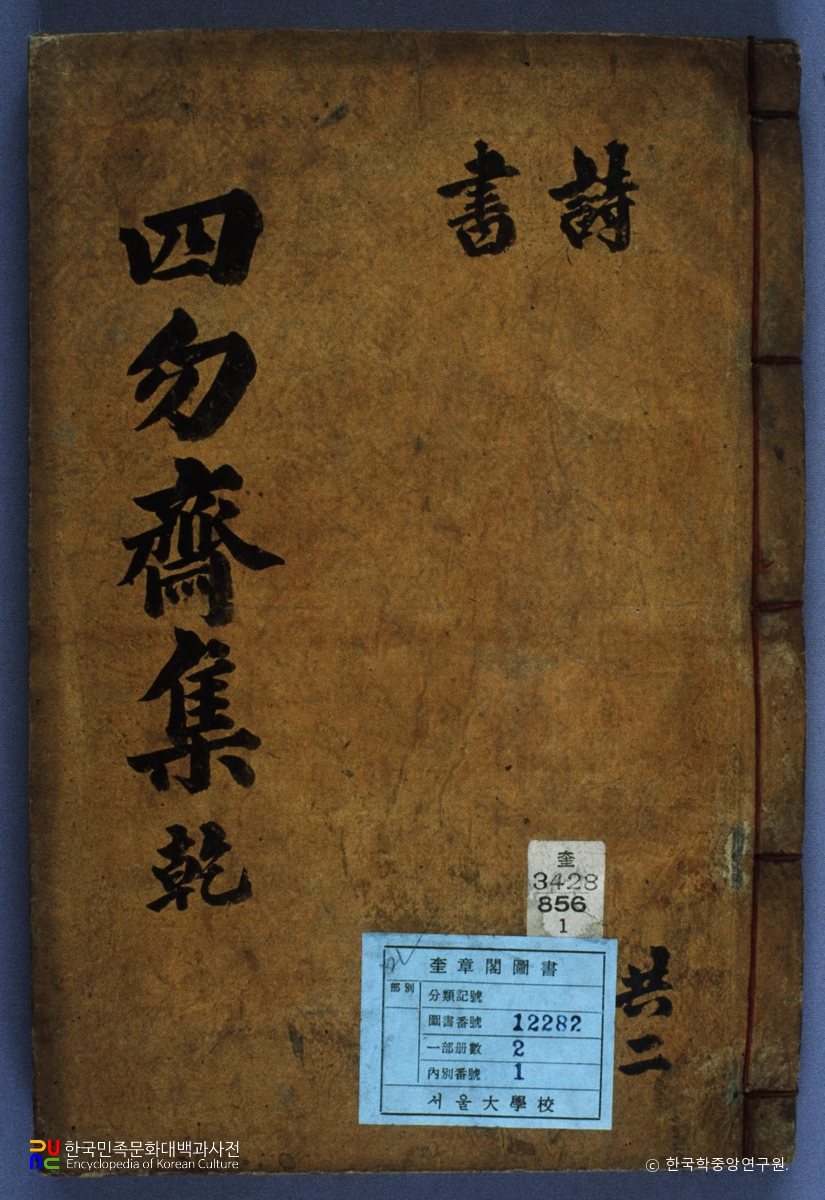 詩
書
四勿齋集 乾
共二
奎
3428
856
1
奎章閣圖書
部別
分類記號
圖書番號 12282
一部册數 2
內別番號 1
서울大學校
한국민족문화대백과사전
Encyclopedia of Korean Culture
© 한국학중앙연구원.